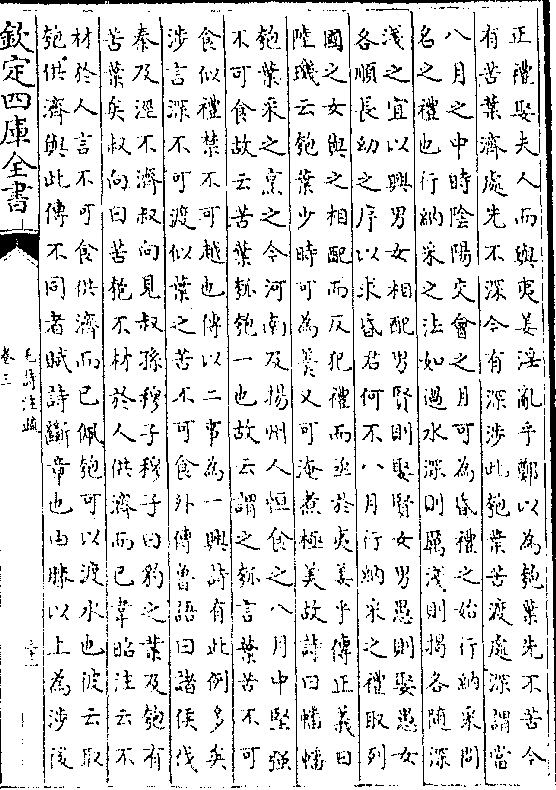 正禮娶夫人而與夷姜淫亂乎鄭以為匏葉先不苦今
有苦葉濟處先不深今有深涉此匏葉苦渡處深謂當
八月之中時陰陽交會之月可為昏禮之始行納采問
名之禮也行納采之法如過水深則厲淺則揭各隨深
淺之宜以興男女相配男賢則娶賢女男愚則娶愚女
各順長幼之序以求昏君何不八月行納采之禮取列
國之女與之相配而反犯禮而烝於夷姜乎傳正義曰
陸璣云匏葉少時可為羹又可淹煮極美故詩曰幡幡
匏葉采之烹之今河南及揚州人恒食之八月中堅强
不可食故云苦葉瓠匏一也故云謂之瓠言葉苦不可
食似禮禁不可越也傳以二事為一興詩有此例多矣
涉言深不可渡似葉之苦不可食外傳魯語曰諸侯伐
秦及涇不濟叔向見叔孫穆子穆子曰豹之業及匏有
苦葉矣叔向曰苦匏不材於人供濟而已韋昭注云不
材於人言不可食供濟而已佩匏可以渡水也彼云取
匏供濟與此傳不同者賦詩斷章也由膝以上為涉後
欽定四庫全書
毛詩注疏
卷三